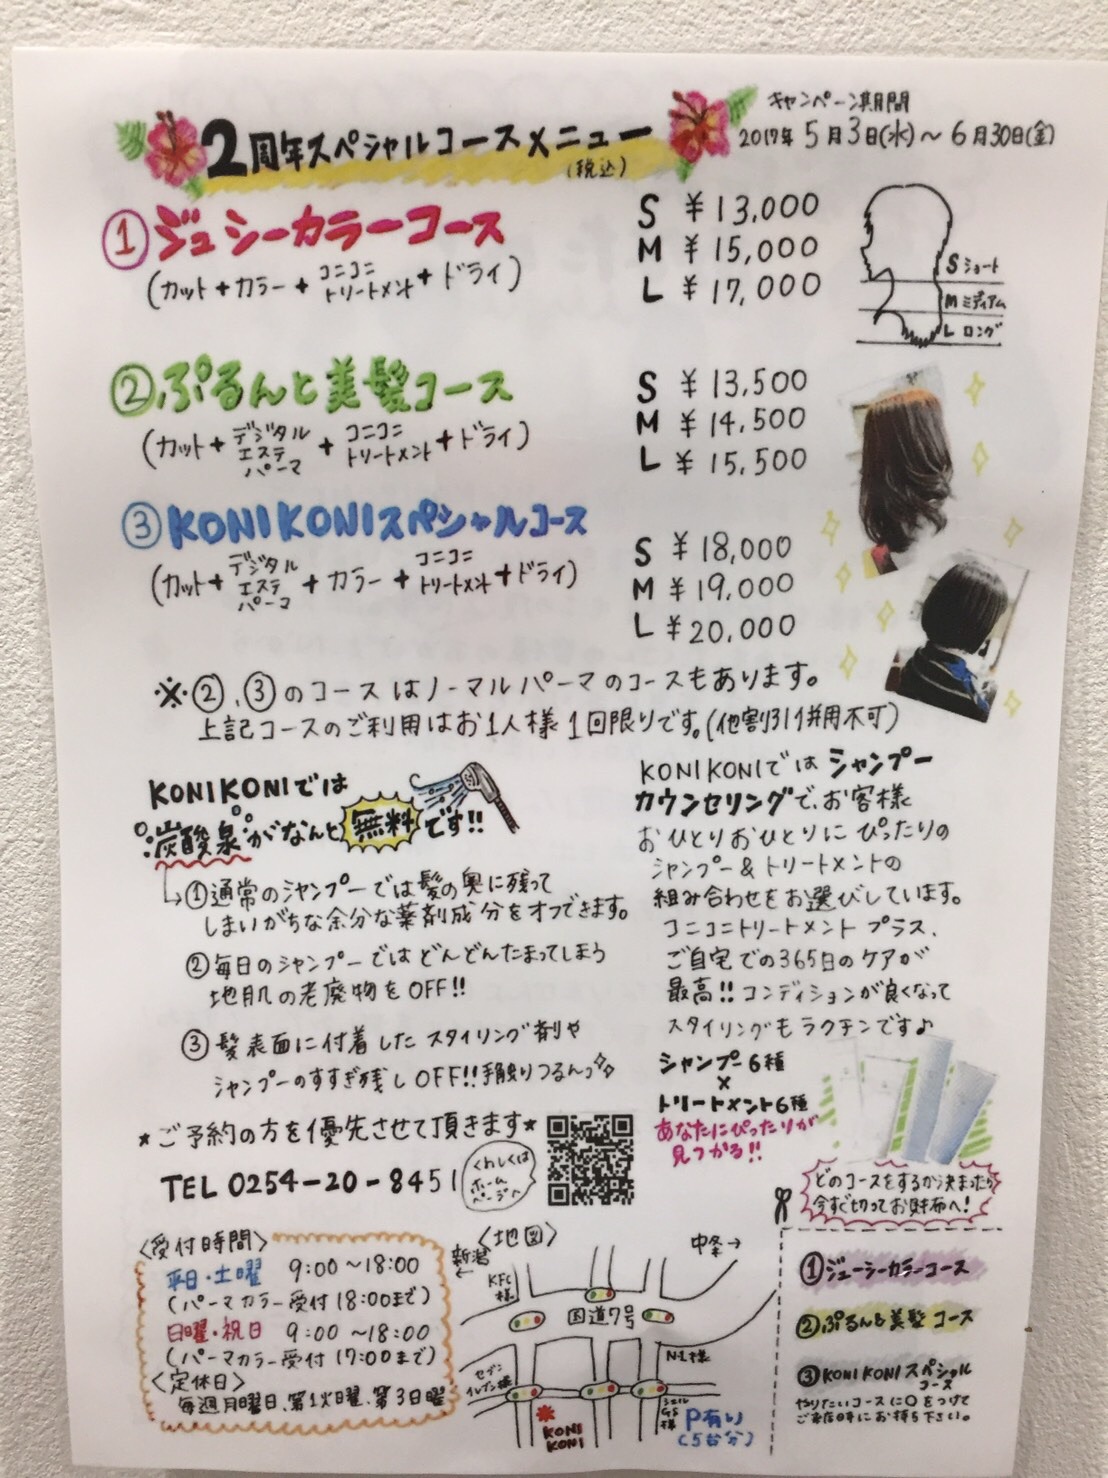 2周年スペシャルコースメニュー
(税込)
キャンペーン期間
2017年 5月3日(水)～6月30日(金)
①ジューシーカラーコース
(カット+カラー+コニコニトリートメント+ドライ)
S ¥13,000
M ¥15,000
L ¥17,000
S ショート
M ミディアム
L ロング
②ぷるんと美髪コース
(カット+デジタルエステパーマ+コニコニトリートメント+ドライ)
S ¥13,500
M ¥14,500
L ¥15,500
③KONIKONIスペシャルコース
(カット+デジタルエステパーマ+カラー+コニコニトリートメント+ドライ)
S ¥18,000
M ¥19,000
L ¥20,000
※②、③のコースはノーマルパーマのコースもあります。
上記コースのご利用はお1人様1回限りです。(他割引併用不可)
KONIKONIでは
炭酸泉がなんと無料です!!
↳①通常のシャンプーでは髪の奥に残って
しまいがちな余分な薬剤成分をオフできます。
②毎日のシャンプーではどんどんたまってしまう
地肌の老廃物をOFF!!
③髪表面に付着したスタイリング剤や
シャンプーのすすぎ残しOFF!!手触りつるんっ
KONIKONIではシャンプー
カウンセリングで、お客様
おひとりおひとりにぴったりの
シャンプー&トリートメントの
組み合わせをお選びしています。
コニコニトリートメントプラス、
ご自宅での365日のケアが
最高!!コンディションが良くなって
スタイリングもラクチンです♪
シャンプー6種
×
トリートメント6種
あなたにぴったりが
見つかる!!
★ご予約の方を優先させて頂きます★
TEL 0254-20-8451
くわしくは
ホーム
ページへ
どのコースをするか決まったら
今すぐ切ってお財布へ!
〈受付時間〉
平日・土曜 9:00～18:00
(パーマカラー受付18:00まで)
日曜・祝日 9:00～18:00
(パーマカラー受付17:00まで)
〈定休日〉
毎週月曜日、第1火曜、第3日曜
〈地図〉
新潟
←
中条→
KFC様
国道7号
N-1様
セブンイレブン様
シェルGS様
P有り
(5台分)
KONI
KONI
①ジューシーカラーコース
②ぷるんと美髪コース
③KONIKONIスペシャル
コース
やりたいコースに○をつけて
ご来店時にお持ち下さい。